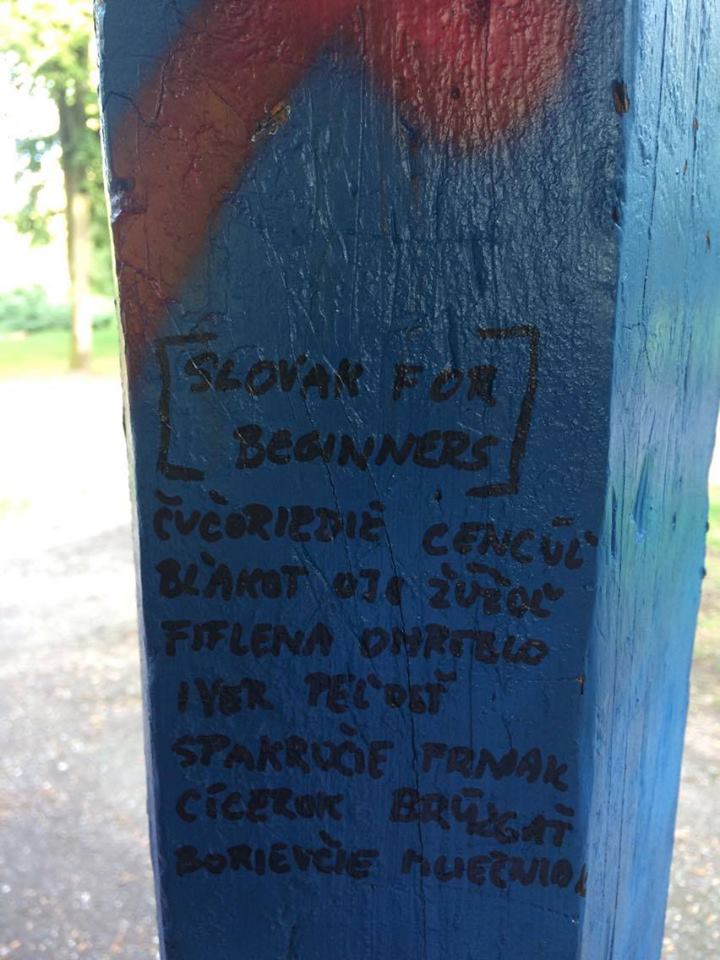 [SLOVAK FOR
BEGINNERS]
ČUČORIEDIE CENCÚĽ
BĽAKOT OJE ŽUŽOĽ
FIFLENA OMRTELO
IVER PEĽOSŤ
SPAKRUČIE FRŇAK
CÍCEROK BRÚZGAŤ
BORIEVČIE